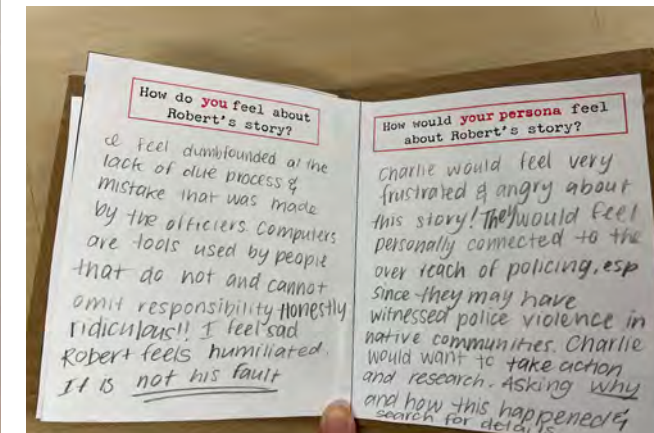 How do you feel about
Robert's story?
I feel dumbfounded at the
lack of due process &
mistake that was made
by the officiers. Computers
are tools used by people
that do not and cannot
omit responsibility. Honestly
ridiculous!! I feel sad
Robert feels humiliated.
It is not his fault
How would your persona feel
about Robert's story?
Charlie would feel very
frustrated & angry about
this story! They would feel
personally connected to the
over reach of policing, esp
since they may have
witnessed police violence in
native communities. Charlie
would want to take action
and research. Asking why
and how this happened &
search for details